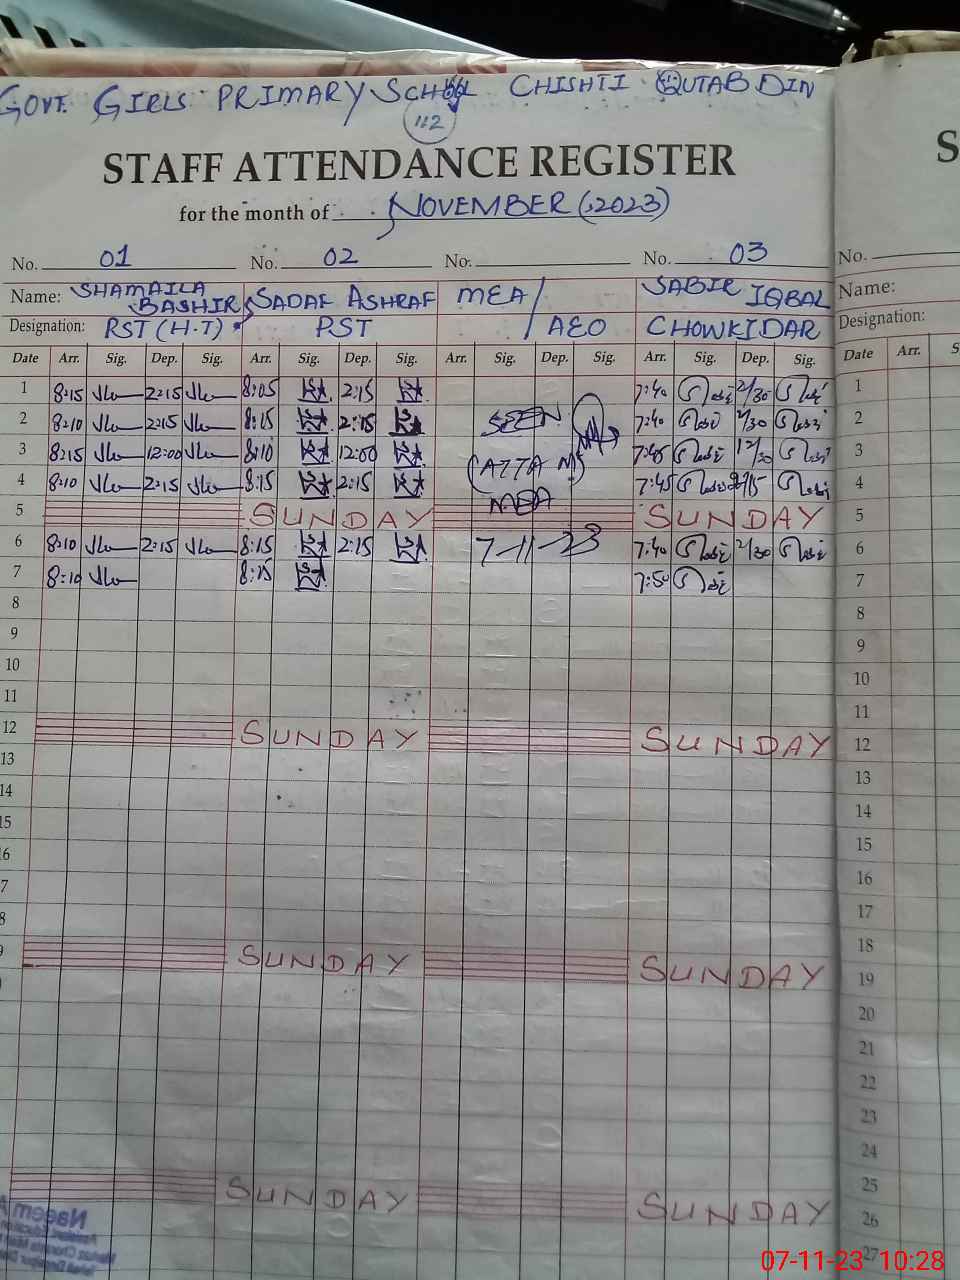 GOVT. GIRLS PRIMARY SCHOOL CHISHTI QUTAB DIN
112
STAFF ATTENDANCE REGISTER
for the month of NOVEMBER (2023)
No. 01 No. 02 No. No. 03 No.
Name: SHAMAILA BASHIR SADAF ASHRAF MEA/ SABIR IQBAL Name:
Designation: PST (H.T) PST AEO CHOWKIDAR Designation:
Date Arr. Sig. Dep. Sig. Arr. Sig. Dep. Sig. Arr. Sig. Dep. Sig. Arr. Sig. Dep. Sig. Date Arr.
1 8:15 2:15 8:05 2:15 7:40 2/30 1
2 8:10 2:15 8:15 2:15 SEEN 7:40 2/30 2
3 8:15 12:00 8:10 12:00 7:45 12/30 3
4 8:10 2:15 8:15 2:15 MEA 7:45 4
5 SUNDAY SUNDAY 5
6 8:10 2:15 8:15 2:15 7-11-23 7:40 2/30 6
7 8:10 8:15 7:50 7
8 8
9 9
10 10
11 11
12 SUNDAY SUNDAY 12
13 13
14 14
15 15
16 16
17 17
18 18
SUNDAY SUNDAY 19
20
21
22
23
24
25
SUNDAY SUNDAY 26
27
07-11-23 10:28